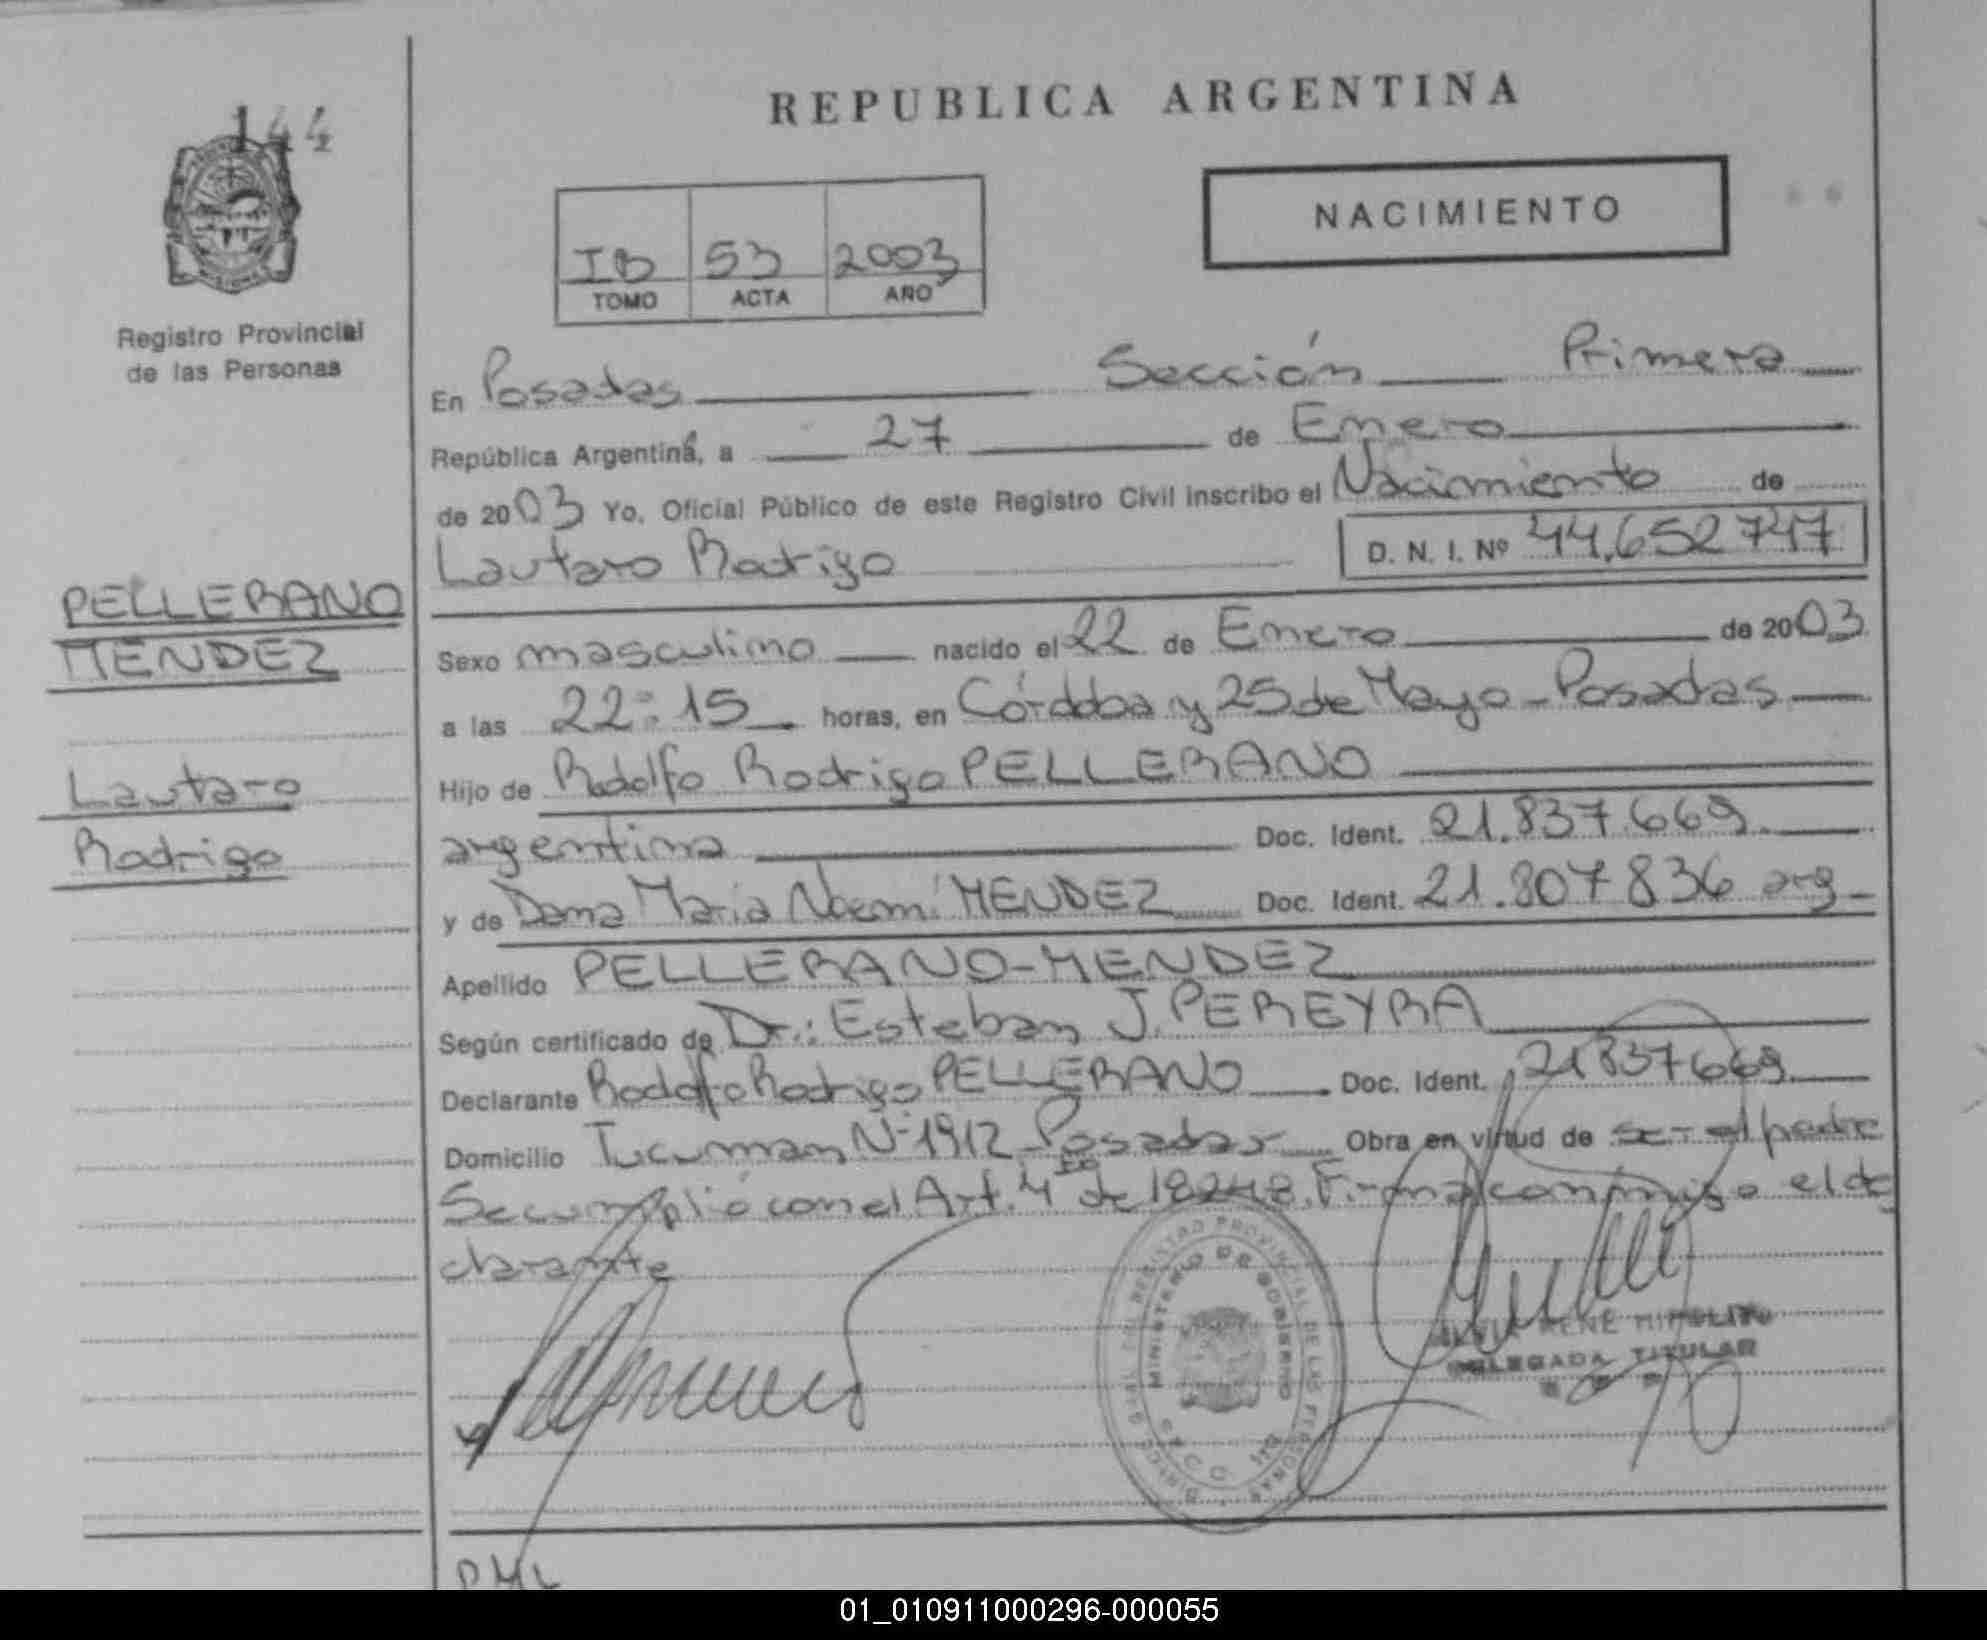 144
REPUBLICA ARGENTINA
NACIMIENTO
IB 53 2003
TOMO ACTA AÑO
Registro Provincial
de las Personas
En Posadas Sección Primera
República Argentina, a 27 de Enero
de 2003 Yo, Oficial Público de este Registro Civil inscribo el Nacimiento de
Lautaro Rodrigo D. N. I. Nº 44.652747
PELLERANO
MENDEZ
Lautaro
Rodrigo
Sexo masculino nacido el 22 de Enero de 2003
a las 22:15 horas, en Córdoba y 25 de Mayo - Posadas
Hijo de Rodolfo Rodrigo PELLERANO
argentina Doc. Ident. 21.837.669
y de Dana María Noemí MENDEZ Doc. Ident. 21.807836 arg
Apellido PELLERANO-MENDEZ
Según certificado de Dr.: Esteban J. PEREYRA
Declarante Rodolfo Rodrigo PELLERANO Doc. Ident. 21837669
Domicilio Tucuman Nº 1912 Posadas Obra en virtud de ser el padre
Se cumplió con el Art. 4 de 18248. Firma conmigo el de
clarante
REGISTRO PROVINCIAL DE LAS PERSONAS
MINISTERIO DE GOBIERNO
RENE HIPOLITO
DELEGADA TITULAR
01_010911000296-000055